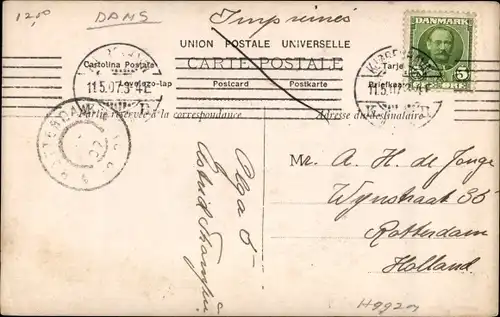 12,00
DANS
Imprimés
DANMARK
5
UNION POSTALE UNIVERSELLE
CARTE POSTALE
Cartolina Postale
Tarje
Levelezo-lap
Postcard
Postkarte
Briefkaart
11.5.07.
11.5.07.
Partie réservée à la correspondance
Adresse du destinataire
ROTTERDAM
Mr. A. H. de Jonge
Wijnstraat 35
Rotterdam
Holland
Olga &
Astrid
H992